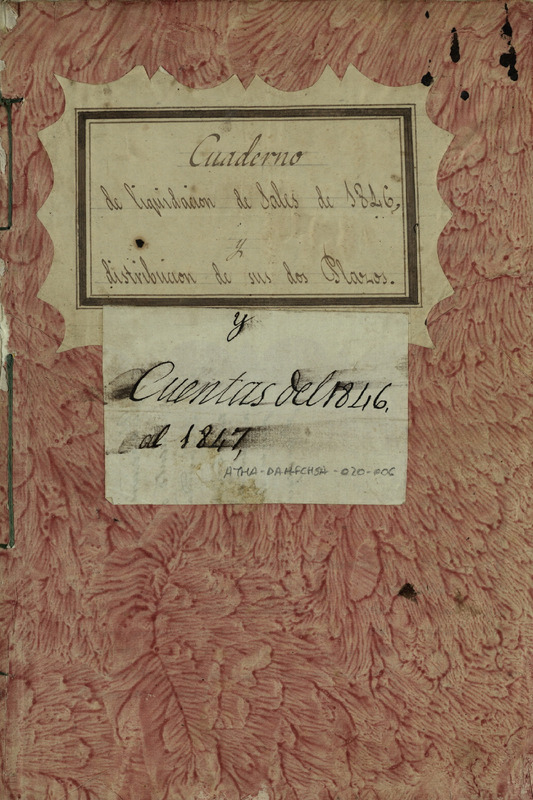 Cuaderno
de liquidacion de Sales de 1846,
y
distribucion de sus dos Plazos.
y
Cuentas del 1846,
al 1847,
ATHA-DAH-FCHSA-020-006